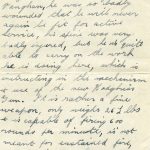 he was so badly
wounded that he will never
again be fit for active
service, his spine was very
badly injured, but he is quite
able to carry on the work
he is doing here, which is
instructing in the mechanism
& use of the new Vaughan's
gun. It is rather a fine
weapon, only weighs 21 lbs
& is capable of firing 600
rounds per minute, is not
meant for sustained fire,